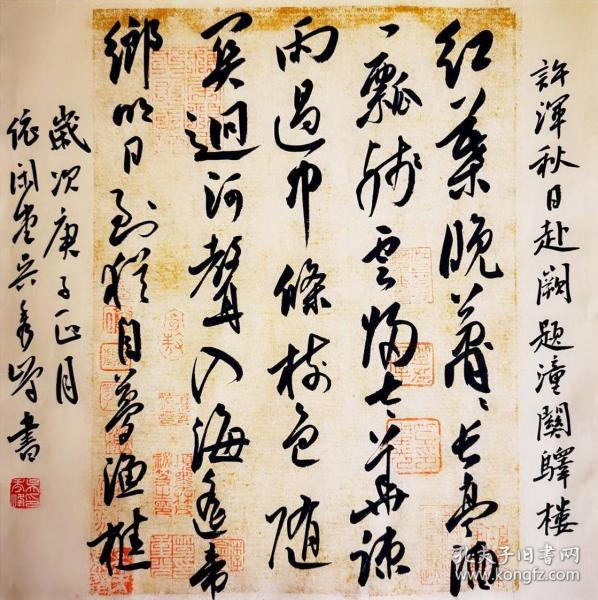 許渾秋日赴闕題潼關驛樓
紅葉晚蕭〻長亭酒
一瓢殘雲歸太華疎
雨過中條樹色随
關迥河聲入海遙帝
鄉明日到猶自夢漁樵
歲次庚子正月
依閑堂吴秀峰書
孔夫子旧书网
www.kongfz.com